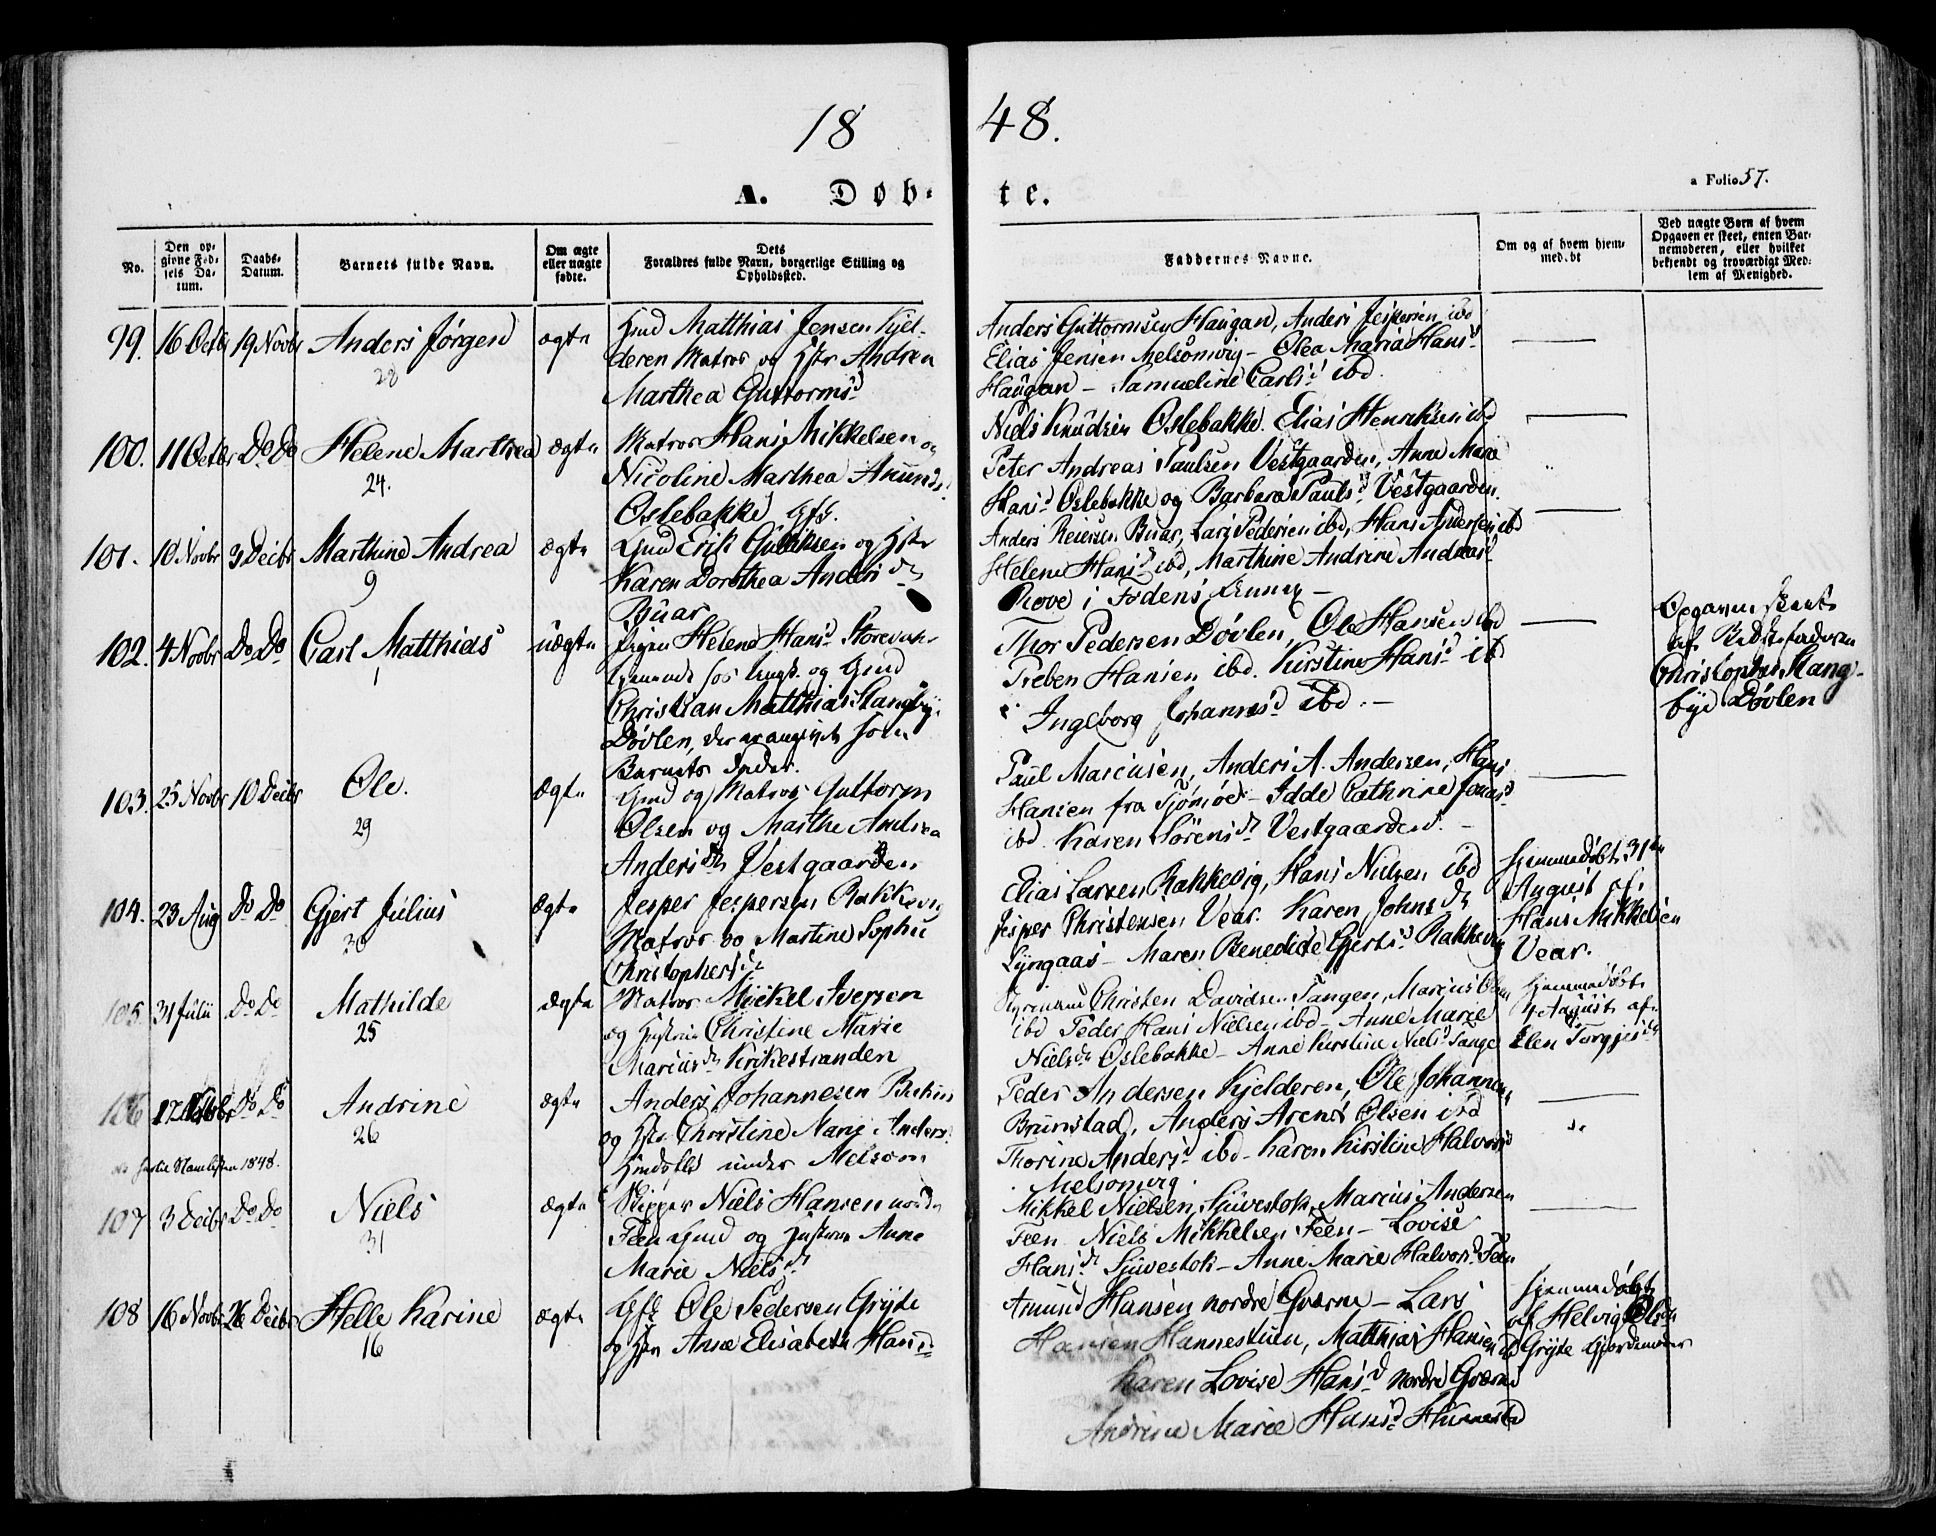 18 48.
A. Døb- te.
a Folio 57.
No.
Den op-
givne Fød-
sels Da-
tum.
Daabs-
Datum.
Barnets fulde Navn.
Om ægte
eller uægte
fødte.
Dets
Forældres fulde Navn, borgerlige Stilling og
Opholdssted.
Faddernes Navne.
Om og af hvem hjem-
med.bt
Ved uægte Børn af hvem
Opgaven er skeet, enten Bar-
nemoderen, eller hvilket
bekjendt og troværdigt Med-
lem af Menighed.
99. 16 Octbr 19 Novbr Anders Jørgen ægte
28
Gmd Matthias Jensen Kjel-
deren Matros og Hstr Andrea
Marthea Guttormsd
Anders Guttormsen Haugan, Anders Jespersen ibd
Elias Jensen Melsomvig - Olea Maria Hansd
Haugan - Samueline Carlsd ibd.
100. 11 Octbr Do Do Helene Marthea ægte
24.
Matros Hans Mikkelsen og
Nicoline Marthea Amundsd
Oslebakke Gfs.
Niels Knudsen Oslebakke. Elias Henriksen ibd
Peter Andreas Paulsen Vestgaarden, Anne Marie
Hansd Oslebakke og Barbara Paulsd Vestgaarden.
101. 10 Novbr 3 Decbr Marthine Andrea ægte
9
Gmd Erik Gulliksen og Hstr
Karen Dorothea Andersdr
Buar
Anders Reiersen Buar, Lars Pedersen ibd, Hans Andersen ibd
Helene Hansd ibd, Marthine Andrine Andersd
Rove i Sodens
102. 4 Novbr Do Do Carl Matthias uægte
1
Pigen Helene Hansd
og Gmd
Christian Matthias Slangbye
Døvlen, der er angivet som
Barnets Fader.
Thor Pedersen Døvlen, Ole Hansen ibd
Preben Hansen ibd. Kirstine Hansd ibd
Ingeborg Johannesd ibd. -
Opgaven skeet
af Bedstefaderen
Christopher Slang-
bye Døvlen
103. 25 Novbr 10 Decbr Ole. ægte
29
Gmd og Matros Guttorm
Olsen og Marthe Andrea
Andersdr Vestgaarden
Paul Marcusen, Anders A. Andersen, Hans
Hansen fra Tjømøe - Idde Cathrine Jonasd
ibd Karen Sørensdr Vestgaarden. -
104. 23 Aug Do Do Gjert Julius ægte
30
Jesper Jespersen Rakkevig
Matros og Martine Sophie
Christophersdr
Elias Larsen Rakkevig, Hans Nielsen ibd
Jesper Christensen Vear. Karen Johnsdr
Lyngaas - Maren Benedicte Gjertsd Rakkevig
Hjemmedøbt 31te
August af
Hans Mikkelsen
Vear.
105. 31 Julii Do Do Mathilde ægte
25
Matros Mickel Iversen
og Hustru Christine Marie
Mariusdr Kirkestranden
Styrmand Christen Davidsen Tangen, Marius Olsen
ibd Peder Hans Nielsen ibd - Anne Marie
Nielsdr Oslebakke - Anne Kirstine Nielsd Tange
Hjemmedøbt
August af
Elen Torgjesdr
106 17 Do Do Andrine ægte
26
1848.
Anders Johannesen
og Hstr Christine Marie Andersd
under Melsom
Peder Andersen Kjelderen, Ole Johannesen
Brunstad, Anders Arent Olsen ibd
Thorine Andersd ibd - Karen Kirstine Halvorsd
Melsomvig.
107 3 Decbr Do Do Niels ægte
31
Skipper Niels Hansen nordre
Feen Gmd og Hustru Anne
Marie Nielsdr
Mikkel Nielsen Sjuvestok, Marius Andersen
Feen Niels Mikkelsen Feen - Lovise
Hansdr Sjuvestok - Anne Marie Halvorsd Feen
108 16 Novbr 26 Decbr Helle Karine ægte
16
Gfs Ole Pedersen Gryte
og Hstr Anne Elisabeth Hansd
Amund Hansen nordre Gværne - Lars
Hansen Hannestuen, Matthias Hansen ibd
Karen Lovise Hansd nordre Gværne
Andrine Marie Hansd
Hjemmedøbt
af Helvig Olsen
Gryte Gjordemoder